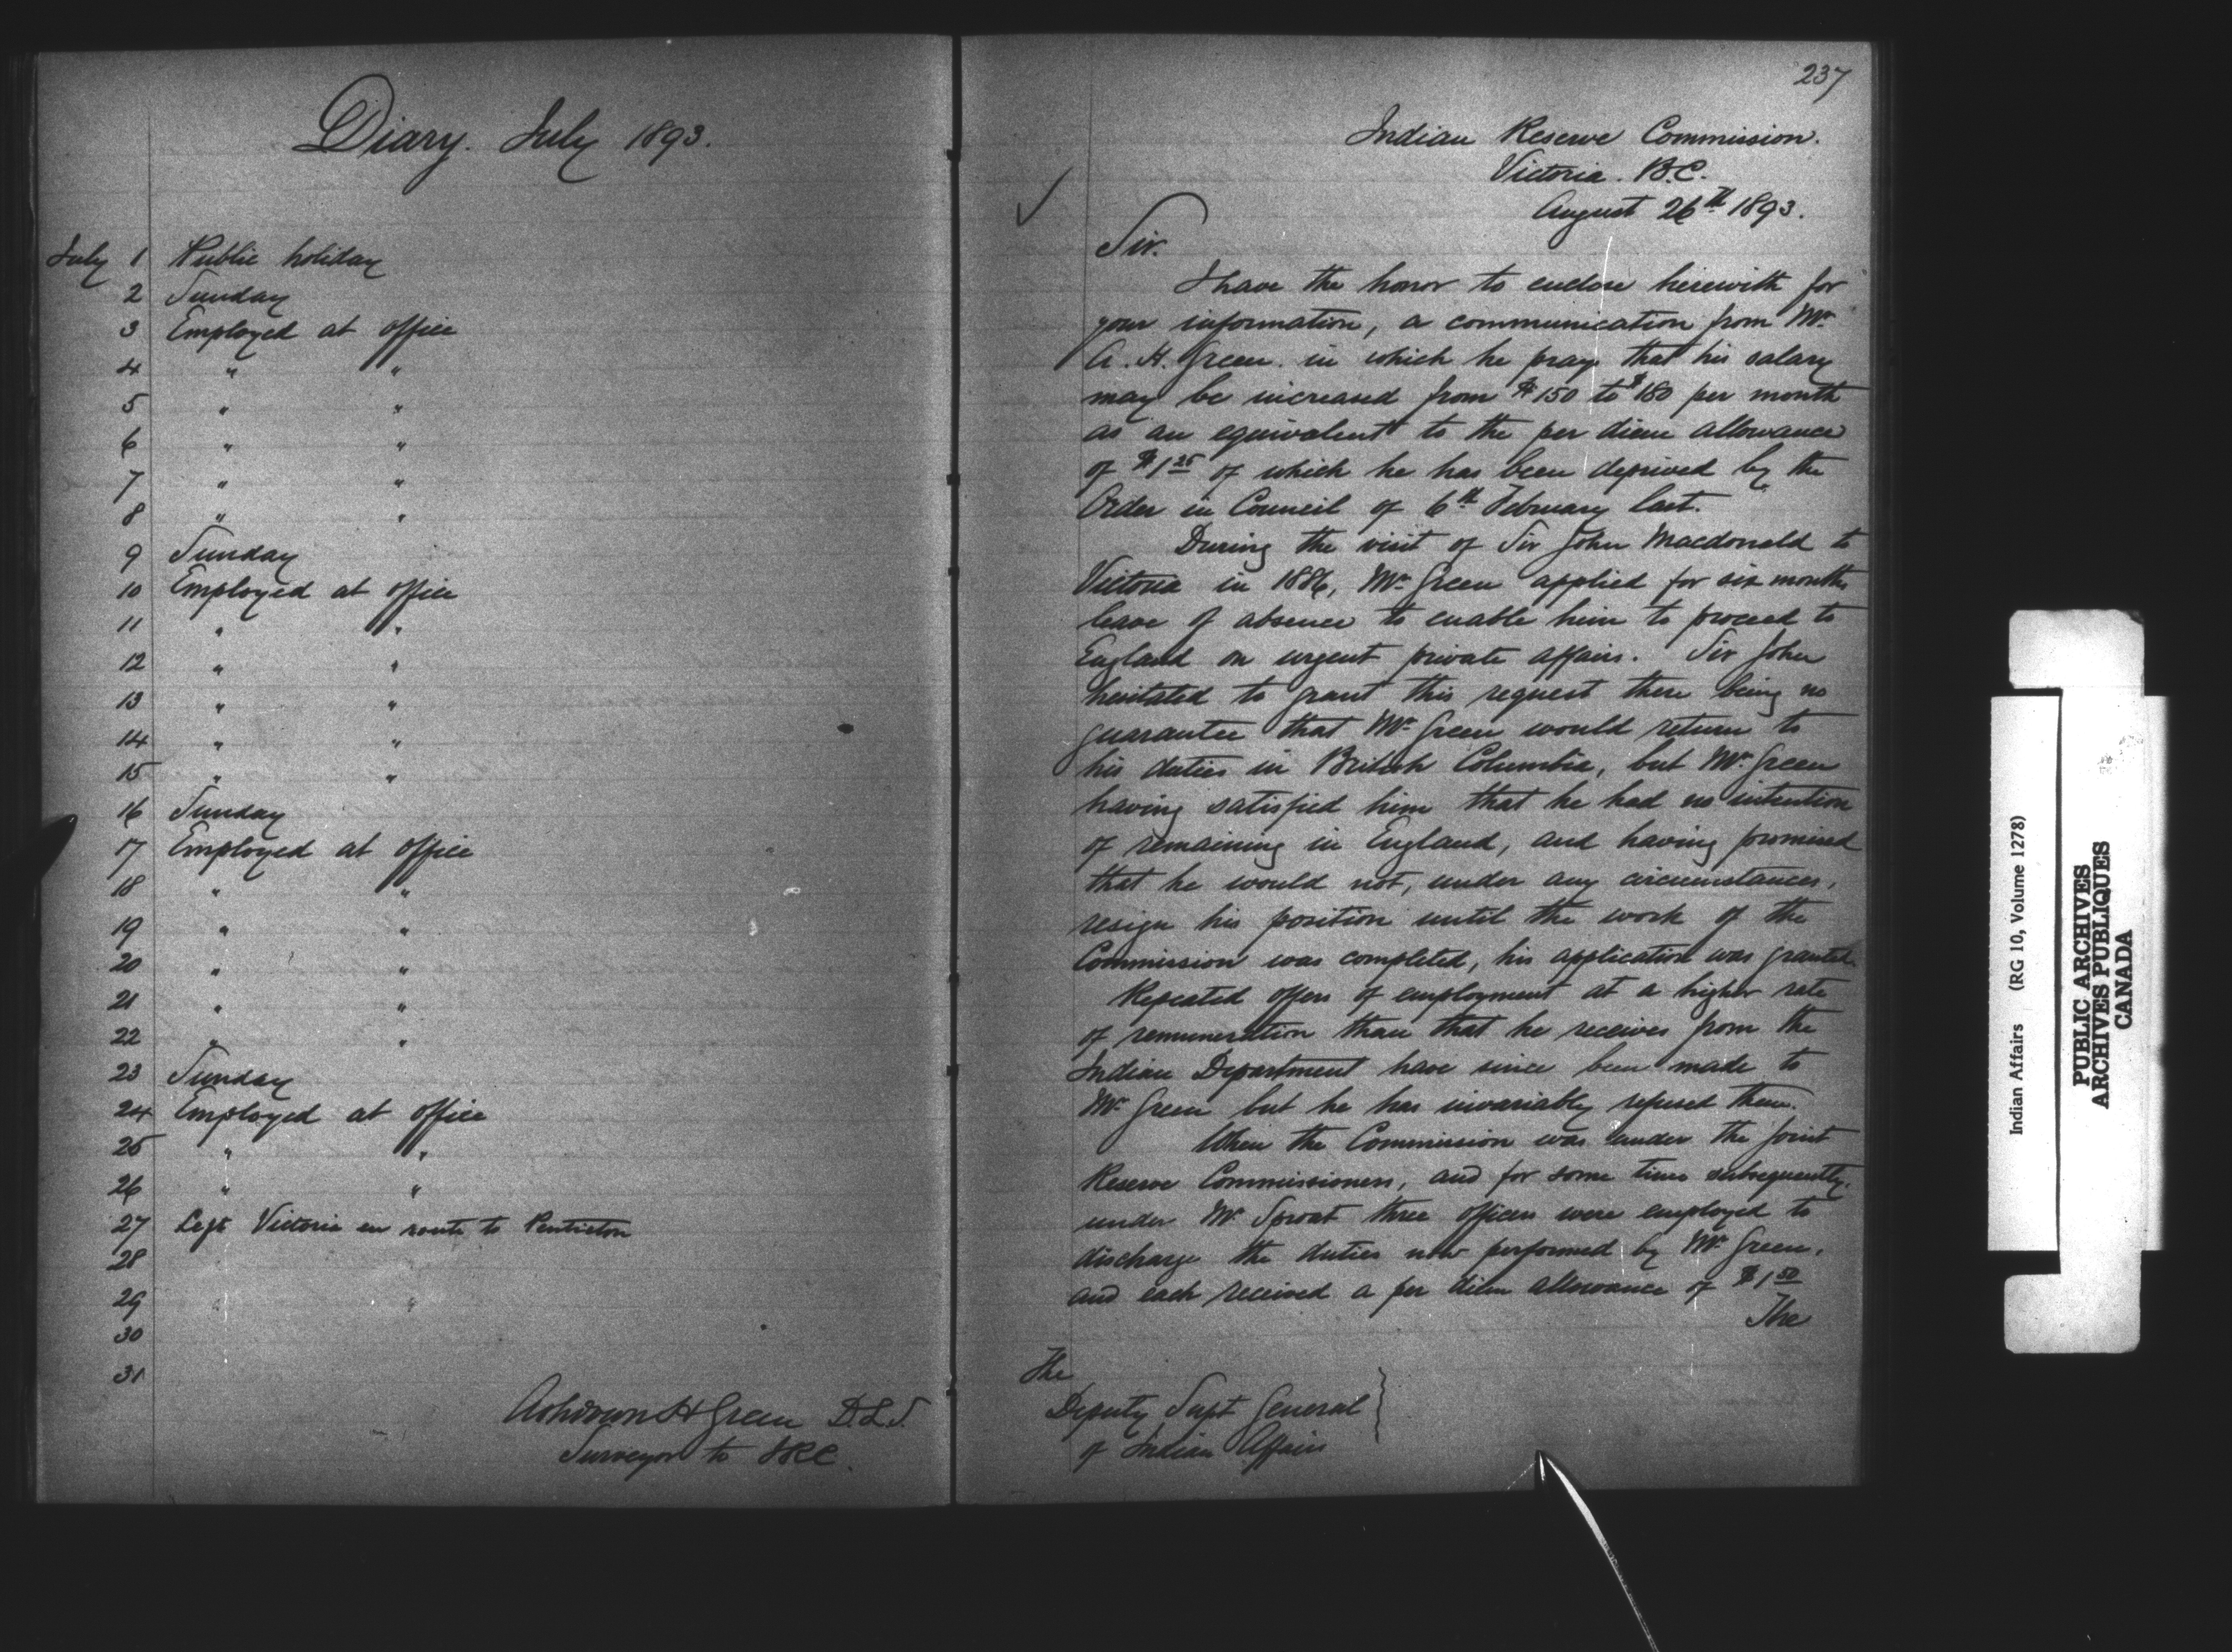 Diary. July 1893.
July 1 Public holiday
2 Sunday
3 Employed at office
4 " "
5 " "
6 " "
7 " "
8 " "
9 Sunday
10 Employed at office
11 " "
12 " "
13 " "
14 " "
15 " "
16 Sunday
17 Employed at office
18 " "
19 " "
20 " "
21 " "
22 " "
23 Sunday
24 Employed at office
25 " "
26 " "
27 Left Victoria en route to Penticton
28
29
30
31
Ashdown H Green D.L.S.
Surveyor to IRC.
237
Indian Reserve Commission.
Victoria. B.C.
August 26th 1893.
Sir.
I have the honor to enclose herewith for
your information, a communication from Mr
A. H. Green. in which he prays that his salary
may be increased from $150 to $180 per month
as an equivalent to the per diem allowance
of $1 25 of which he has been deprived by the
Order in Council of 6th February last.
During the visit of Sir John Macdonald to
Victoria in 1886, Mr Green applied for six months
leave of absence to enable him to proceed to
England on urgent private affairs. Sir John
hesitated to grant this request there being no
guarantee that Mr Green would return to
his duties in British Columbia, but Mr Green
having satisfied him that he had no intention
of remaining in England, and having promised
that he would not, under any circumstances,
resign his position until the work of the
Commission was completed, his application was granted.
Repeated offers of employment at a higher rate
of remuneration than that he receives from the
Indian Department have since been made to
Mr Green but he has invariably refused them.
When the Commission was under the Joint
Reserve Commissioners, and for some time subsequently,
under Mr Sproat three officers were employed to
discharge the duties now performed by Mr Green,
and each received a per diem allowance of $1 50
The
The
Deputy Supt General
of Indian Affairs
Indian Affairs (RG 10, Volume 1278)
PUBLIC ARCHIVES
ARCHIVES PUBLIQUES
CANADA